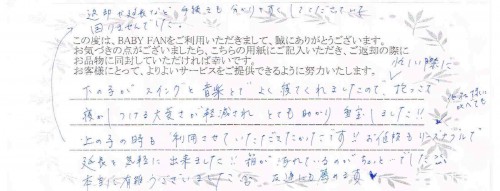 返却や延長など手続きも分かり易くしてたので
困りませんでした。
この度は、BABY FANをご利用いただきまして、誠にありがとうございます。
お気づきの点がございましたら、こちらの用紙にご記入いただき、ご返却の際に
お品物に同封していただければ幸いです。
お客様にとって、よりよいサービスをご提供できるように努力いたします。
忙しい際に
下の子がスイングと音楽とでよく寝てくれましたので、抱っこで
寝かしつける大変さが軽減され とても助かり 重宝しました!!
上の子の時も利用させていただいてたかったです!! お値段もリーズナブルで
他社様に比べても
延長も気軽に出来ました!! 種が ているのがちょっと でしたが
本当に有難うございました 友達にも薦めます